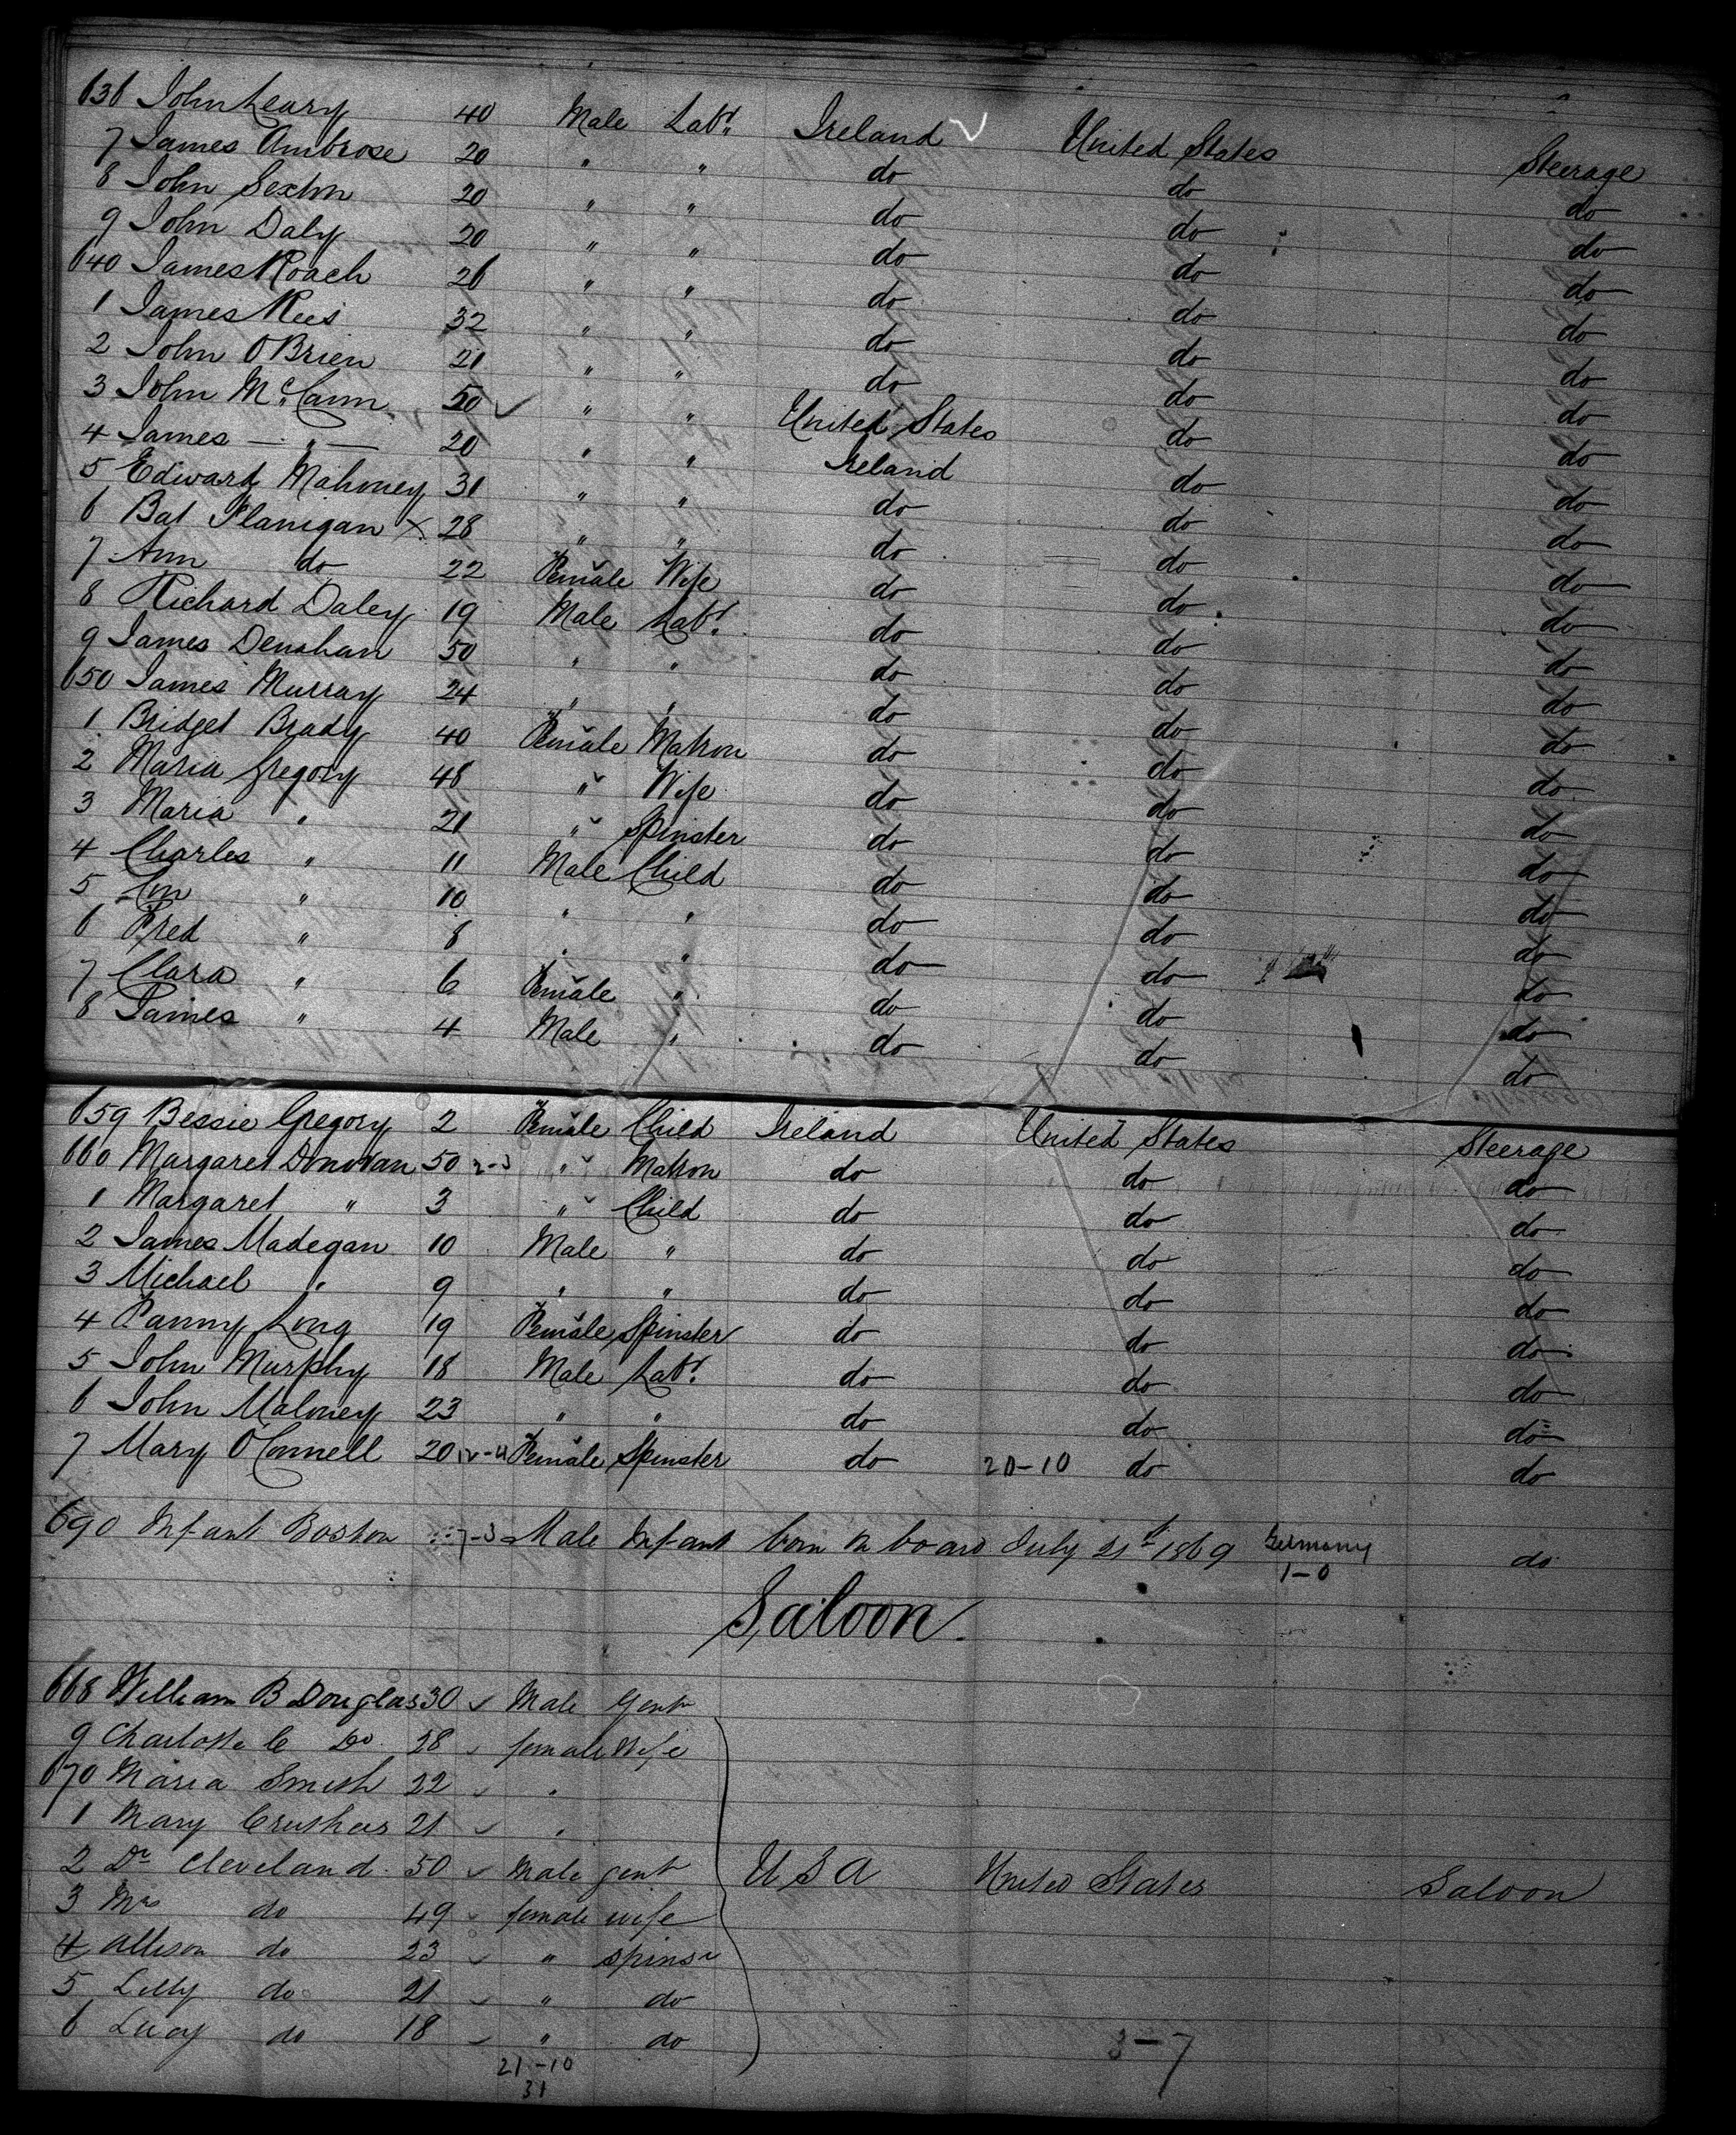 636 John Leary 40 Male Labr. Ireland United States Steerage
7 James Ambrose 20 " " do do do
8 John Sexton 20 " " do do do
9 John Daly 20 " " do do do
640 James Roach 26 " " do do do
1 James Rees 32 " " do do do
2 John O'Brien 21 " " do do do
3 John McCann 50 " " United States do do
4 James — " — 20 " " Ireland do do
5 Edward Mahoney 31 " " do do do
6 Bat Flanigan X 28 " " do do do
7 Ann do 22 Female Wife do do do
8 Richard Daley 19 Male Labr. do do do
9 James Denahan 50 " " do do do
650 James Murray 24 " " do do do
1 Bridget Brady 40 Female Matron do do do
2 Maria Gregory 48 " Wife do do do
3 Maria " 21 " Spinster do do do
4 Charles " 11 Male Child do do do
5 " 10 " " do do do
6 Fred " 8 " " do do do
7 Clara " 6 Female " do do do
8 James " 4 Male " do do do
659 Bessie Gregory 2 Female Child Ireland United States Steerage
660 Margaret Donovan 50 2-3 " Matron do do do
1 Margaret " 3 " Child do do do
2 James Madegan 10 Male " do do do
3 Michael " 9 " " do do do
4 Fanny Long 19 Female Spinster do do do
5 John Murphy 18 Male Labr. do do do
6 John Maloney 23 " " do do do
7 Mary O'Connell 20 12-4 Female Spinster do 20-10 do do
690 Infant Boston 7-3 Male Infant born on board July 21st 1869 Germany do
1-0
Saloon.
668 William B Douglas 30 Male Gent
9 Charlotte C Do. 28 female Wife
670 Maria Smith 22 "
1 Mary 21 "
2 Dr Cleveland 50 Male gent U S A United States Saloon
3 Mrs do 49 female wife
4 Allison do 23 " spinsr
5 Lilly do 21 " do
6 Lucy do 18 " do
21-10 3-7
31